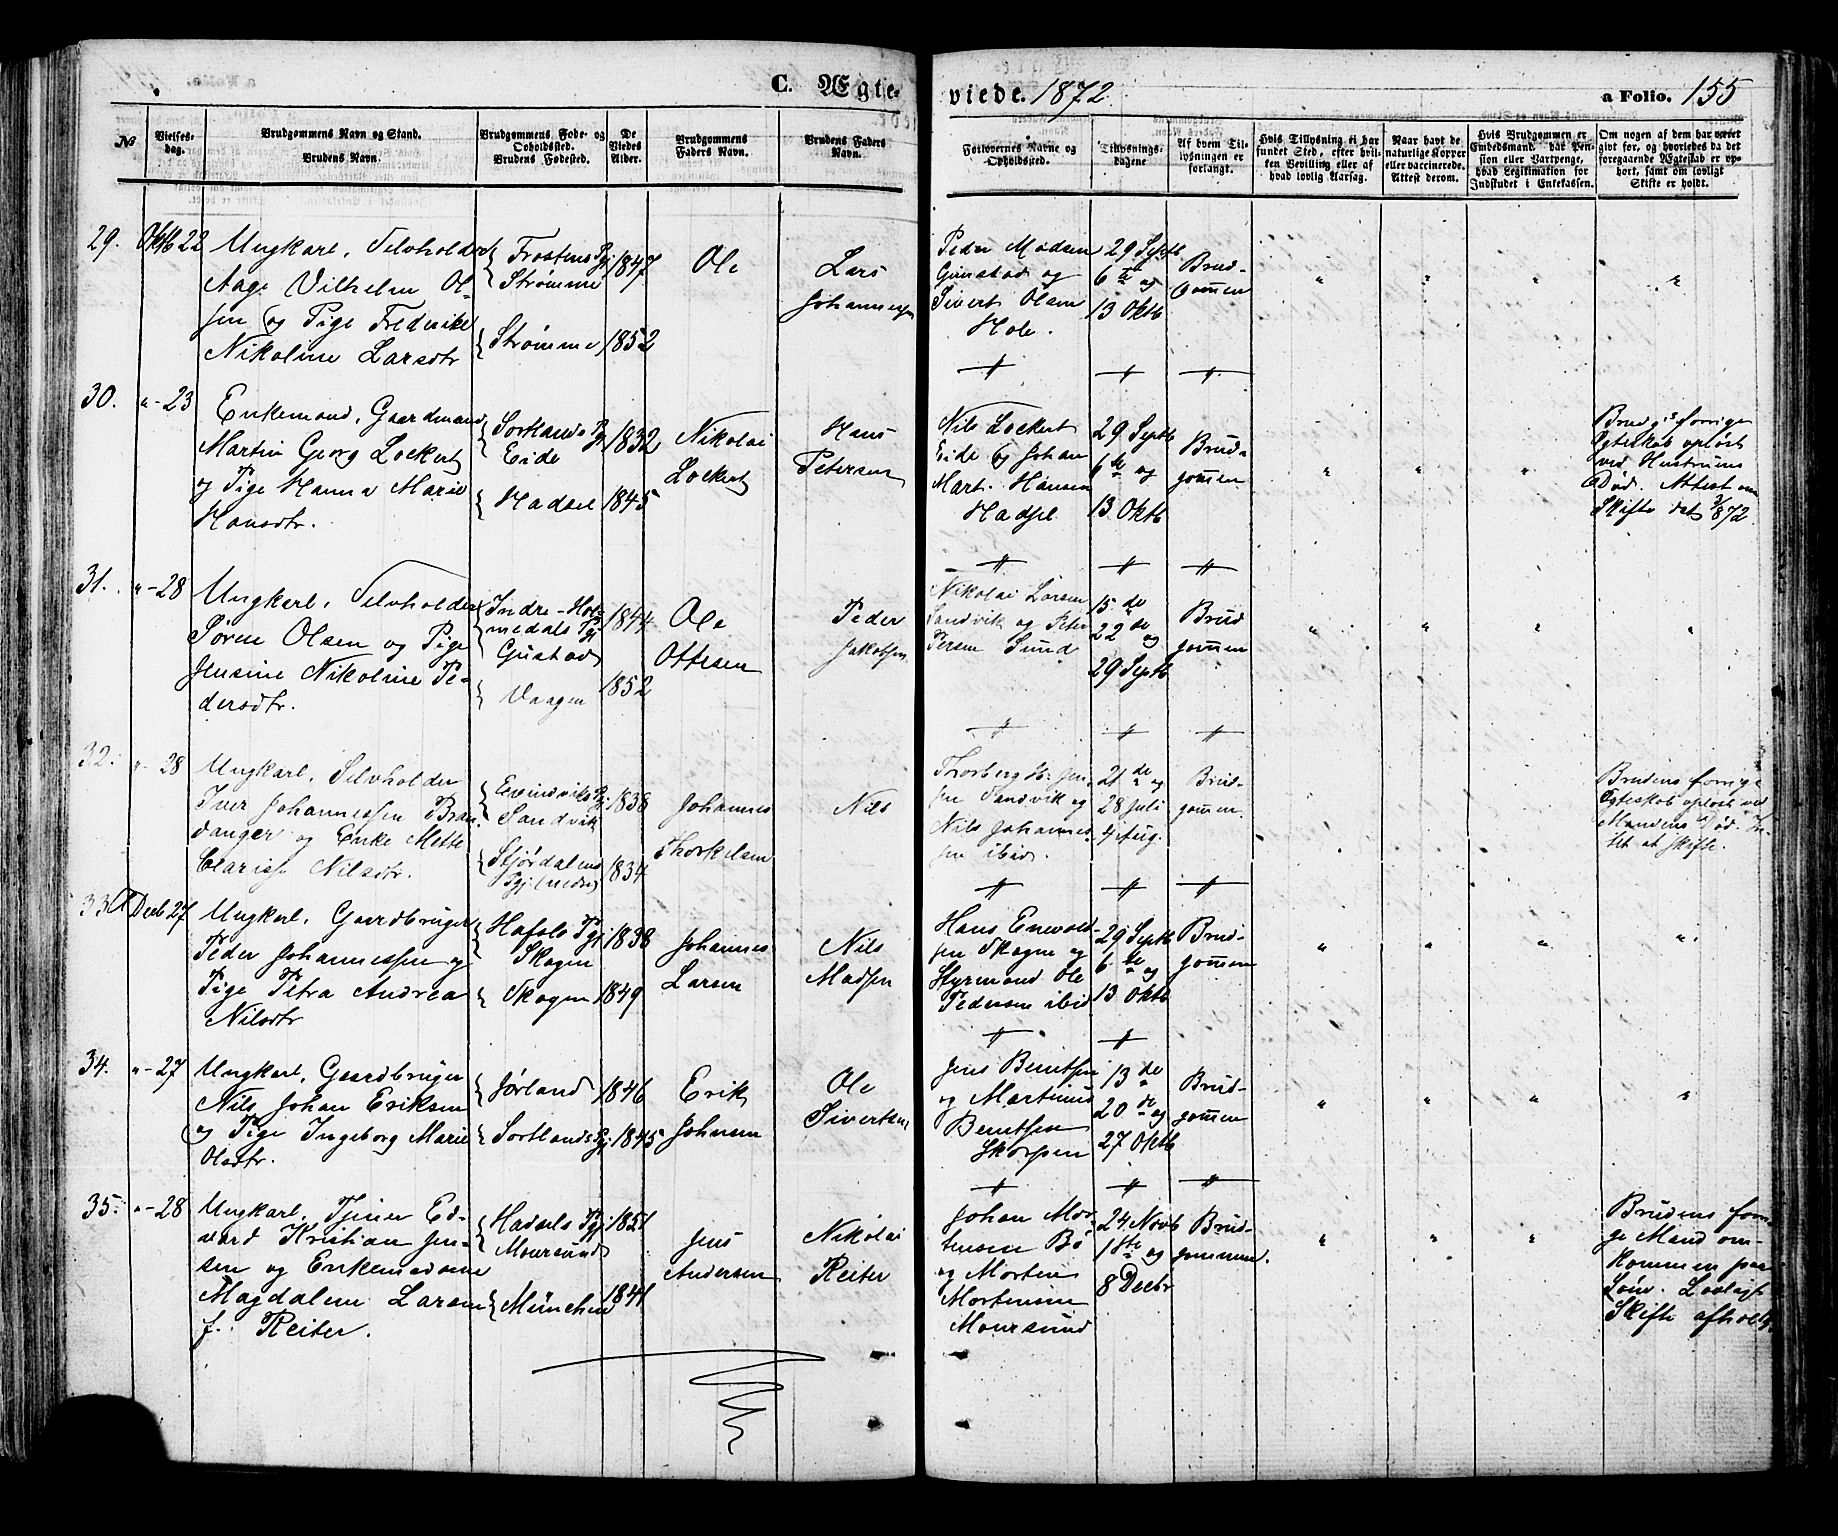 C. Ægte-
viede. 1872
a Folio. 155
№
Vielses-
dag.
Brudgommens Navn og Stand.
Brudens Navn.
Brudgommens Føde- og
Opholdssted.
Brudens Fødested.
De
Viedes
Alder.
Brudgommens
Faders Navn.
Brudens Faders
Navn.
Forlovernes Navne og
Opholdssted.
Tillysnings-
dagene
Af hvem Til-
lysningen er
forlangt.
Hvis Tillysning ei har
fundet Sted, efter hvil-
ken Bevilling eller af
hvad lovlig Aarsag.
Naar havt de
naturlige Kopper
eller vaccinerede.
Attest derom.
Hvis Brudgommen er
Embedsmand har Pen-
sion eller Vartpenge,
hvad Legitimation for
Indskudet i Enkekassen.
Om nogen af dem har været
gift før, og hvorledes da det
foregaaende Ægteskab er op-
hørt, samt om lovligt
Skifte er holdt.
29.
Oktb 22
Ungkarl, Selvholder
Aage Vilhelm Ol-
sen og Pige Frederike
Nikoline Larsdtr
Frostens Pgj.
Strømme
Strømme
1847
1852
Ole
Lars
Johannesen
Peder Madsen
Grinstad og
Sivert Olsen
Hole.
29 Septb
6te og
13 Oktb
Brud-
gommen
" " " "
30.
"-23
Enkemand, Gaardmand
Martin Georg Lockert
og Pige Hanna Marie
Hansdtr.
Sortlands Pgj
Eide
Hadsel
1832
1845
Nikolai
Lockert
Hans
Petersen
Nils Lockert
Eide og Johan
Mart. Hansen
Hadsel
29 Septb
6te og
13 Oktb
Brud-
gommen
" " "
Brudg.s forrige
Egteskab opløst
ved Hustruens
Død. Attest om
Skifte dat.
31.
"-28
Ungkarl, Selvholder
Søren Olsen og Pige
Jensine Nikoline Pe-
dersdtr.
Indre-Hol-
medals Pgj
Gustad
Vaagen
1844
1852
Ole
Ottesen
Peder
Jakobsen
Nikolai Larsen
Sandvik og Peter
Persen Sund
15de
22de og
29 Septb
Brud
gommen
" " " "
32.
"-28
Ungkarl, Selvholder
Iver Johannessen Bran-
danger og Enke Mette
Clarisse Nilsdtr.
Eevindviks Pgj
Sandvik
Stjørdalens
Pgj (nedre)
1838
1834
Johannes
Thorkelsen
Nils
Thorberg H. Jen-
sen Sandvik og
Nils Johannes-
sen ibid.
21de og
28 Juli
4 Aug.
Brud-
gommen
Brudens forrige
Egteskab opløst ved
Mandens Død.
33
Decb 27
Ungkarl, Gaardbruger
Peder Johannessen og
Pige Petra Andrea
Nilsdtr
Hafslo Pgj
Skogen
Skogen
1838
1849
Johannes
Larsen
Nils
Madsen
Hans Enevold-
sen Skogen og
Styrmand Ole
Pedersen ibid
29 Septb
6te og
13 Oktb
Brud-
gommen
" " " "
34.
"-27
Ungkarl, Gaardbruger
Nils Johan Eriksen
og Pige Ingeborg Marie
Olsdtr.
Jørland
Sortlands Pgj.
1846
1845
Erik
Johnsen
Ole
Sivertsen
Jens Bentsen
og Martinus
Bentsen
Skorpen
13de
20de og
27 Oktb
Brud-
gommen
" " " "
35.
"-28
Ungkarl, Tjener Ed-
vard Kristian Jen-
sen og Enkemadame
Magdalena Larsen
f. Reiter.
Hadsels Pgj
Moursund
München
1851
1841
Jens
Andersen
Nikolai
Reiter
Johan Mor-
tensen Bø
og Morten
Mortensen
Moursund
24 Novb
1ste og
8 Decbr
Brud-
gommen.
" " "
Brudens forri-
ge Mand om-
kommen paa
Søen. Lovligt
Skifte afholdt.